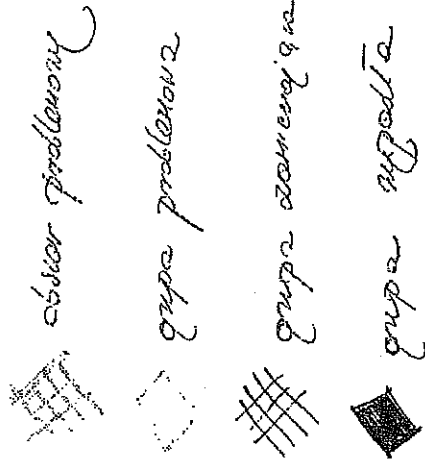 obszar problemowy
grupa problemowa
grupa dominująca
grupa wypadła